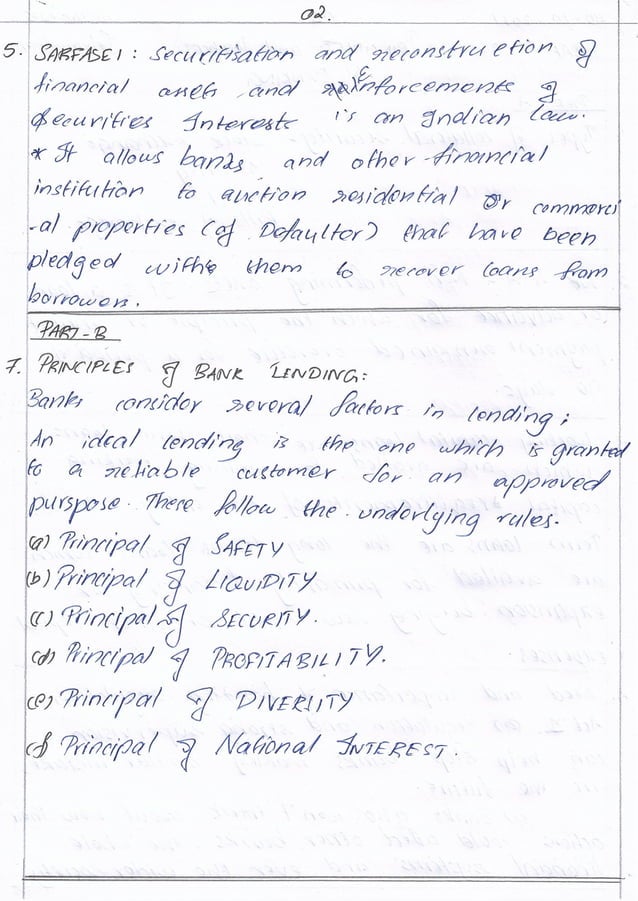 02.
5. SARFASEI : Securitisation and reconstruction of
financial assets and enforcements of
Securities Interests is an Indian law.
* It allows banks and other financial
institution to auction residential or commerci
-al properties (of Defaultor) that have been
pledged with them to recover loans from
borrowers.
PART-B
7. PRINCIPLES of BANK LENDING:
Banks consider several factors in lending;
An ideal lending is the one which is granted
to a reliable customer for an approved
purspose. These follow the underlying rules.
(a) Principal of SAFETY
(b) Principal of LIQUIDITY
(c) Principal of SECURITY.
(d) Principal of PROFITABILITY.
(e) Principal of DIVERSITY
(f) Principal of National INTEREST.